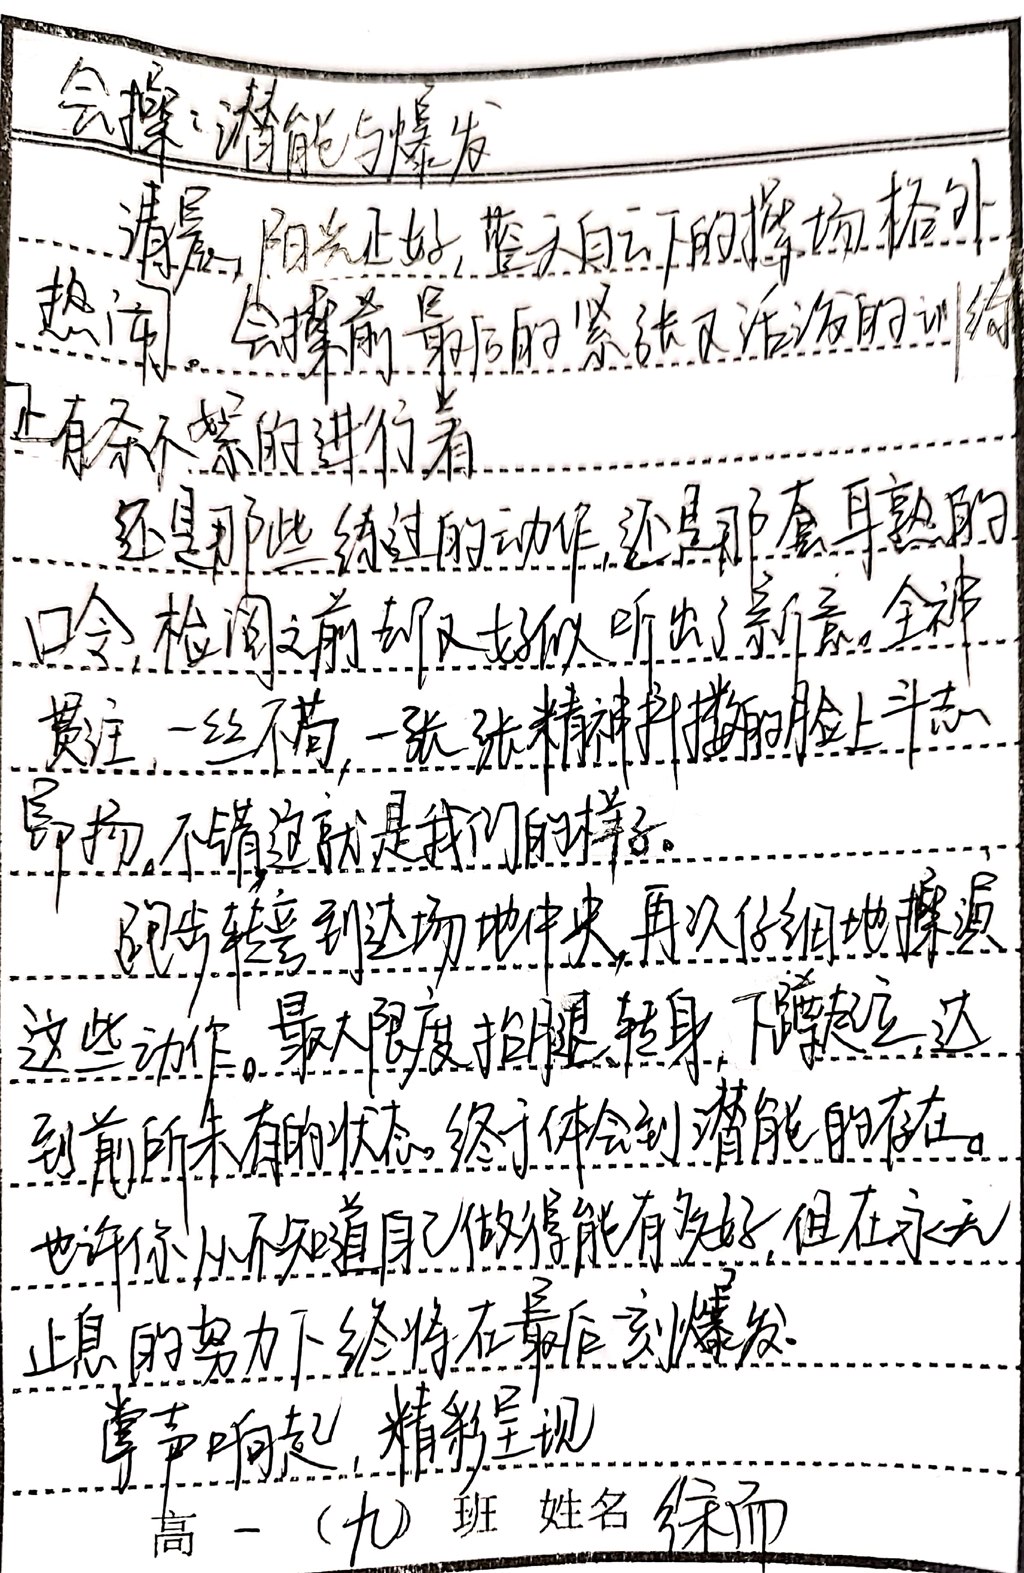 会操：潜能与爆发
清晨，阳光正好，蓝天白云下的操场格外
热闹。会操前最后的紧张又活泼的训练
正有条不紊的进行着
还是那些练过的动作，还是那套耳熟的
口令，检阅之前却又好似听出了新意。全神
贯注，一丝不苟，一张张精神抖擞的脸上斗志
昂扬。不错这就是我们的样子。
跑步转弯到达场地中央，再次仔细地操演
这些动作。最大限度抬腿、转身，下蹲起立，达
到前所未有的状态。终于体会到潜能的存在。
也许你从不知道自己做得能有多好，但在永无
止息的努力下终将在最后一刻爆发。
掌声响起，精彩呈现
高一（九）班 姓名 徐而